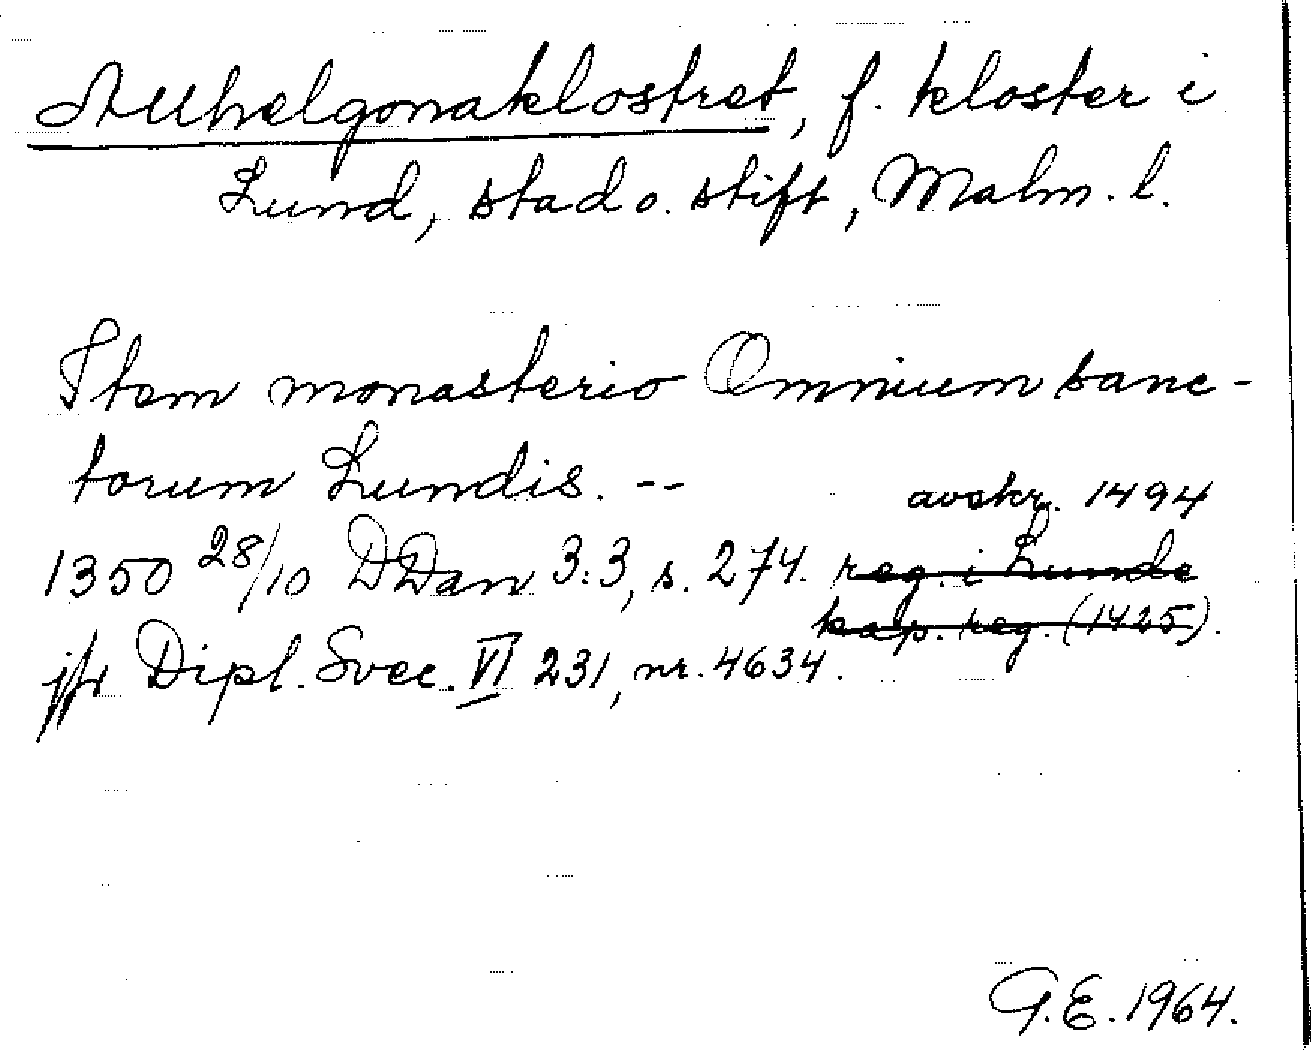 Allhelgonaklostret, f. kloster i
Lund, stad o. stift, Malm. l.
Item monasterio Omnium sanc-
torum Lundis. --
avskr. 1494
1350 28/10 DDan 3:3, s. 274. reg. i Lunde
kap. reg. (1425).
jfr Dipl. Svec. VI 231, nr. 4634.
G.E. 1964.